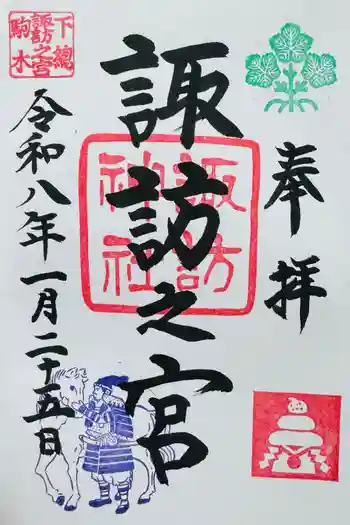 奉拝
諏訪之宮
諏訪神社
下總
諏訪之宮
駒木
令和八年一月二十五日